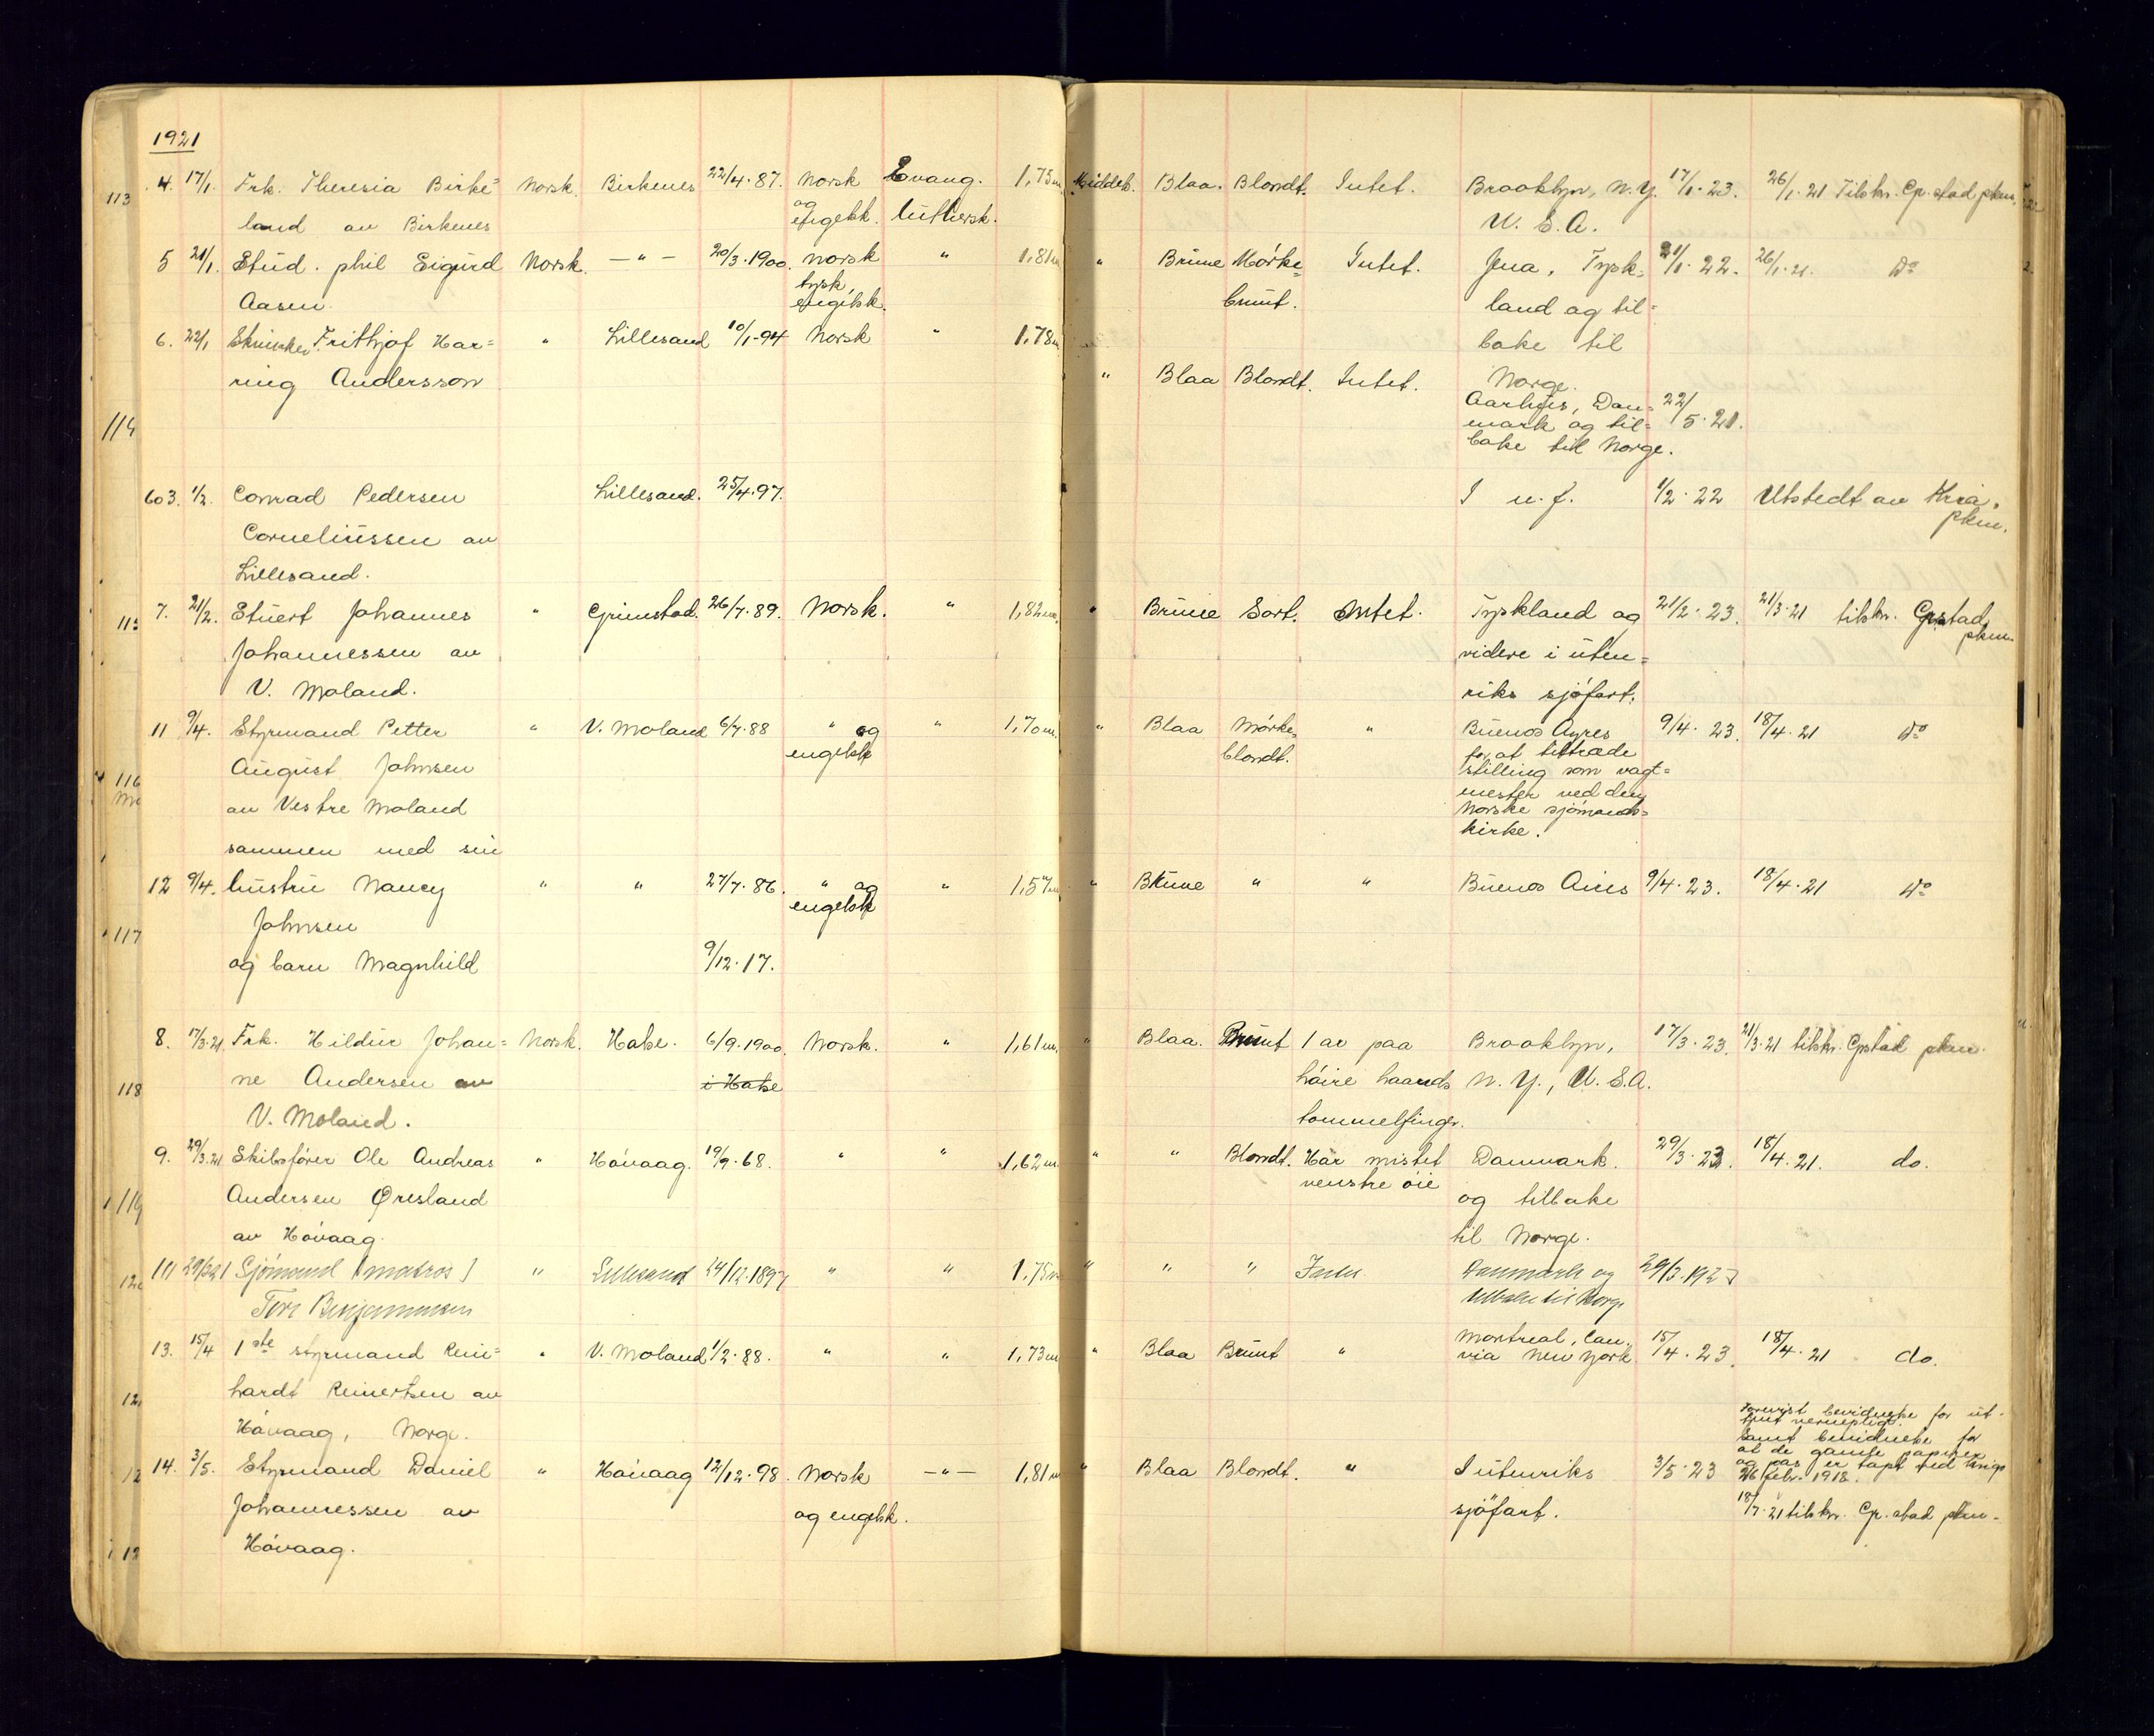 1921
113 4. 17/1. Frk. Theresia Birke= Norsk. Birkenes 22/4.87. Norsk Evang. 1,75m. Middels. Blaa. Blondt. Intet. Brooklyn, N.Y. 17/1.23. 26/1.21 Tilskr. Gr.stad pkm.
land av Birkenes og engelsk. luthersk. U. S. A.
5 21/1. Stud. phil Sigurd Norsk. —"— 20/3.1900. Norsk " 1,81m " Brune Mörke= Intet. Jena, Tysk= 21/1.22. 26/1.21. Do
Aasen. tysk, engelsk. brunt. land og til=
bake til
Norge.
6. 22/1 Frithjof Har= " Lillesand 10/1-94 Norsk " 1,78m
ring Andersson " Blaa Blondt. Intet.
114 Aarhus, Dan= 22/5.21.
mark og til=
bake til Norge.
603. 1/2. Conrad Pedersen Lillesand. 25/4.97. I u. f. 1/2.22 Utstedt av Kria. pkm.
Corneliussen av
Lillesand.
7. 21/2. Stuert Johannes " Grimstad. 26/7.89. Norsk. " 1,82m. " Brune Sort. Intet. Tyskland og 21/2.23. 21/3.21 tilskr. Grstad pkm
Johannessen av videre i uten=
V. Moland. riks sjöfart.
11 9/4. Styrmand Petter " V. Moland 6/7.88 " og engelsk " 1,70m. " Blaa Mörke= blondt. " Buenos Ayres 9/4.23. 18/4.21 Do
for at tiltræde
116 August Johnsen stilling som vagt=
mester ved den
av Vestre Moland Norske sjömands=
kirke.
sammen med sin
12 9/4. hustru Nancy " " 27/7.86. " og engelsk " 1,57m " Brune " " Buenos Aires 9/4.23. 18/4.21 Do
117 Johnsen
og barn Magnhild 9/12.17.
8. 17/3.21. Frk. Hildur Johan= Norsk. Habe. 6/9.1900. Norsk. " 1,61m. " Blaa. Brunt 1 ar paa Brooklyn, 17/3.23. 21/3.21 tilskr. Grstad pkm.
118 ne Andersen av i Habe höire haands N. Y., U. S. A.
V. Moland. tommelfinger.
9. 29/3.21 Skibsfører Ole Andreas " Hövaag. 19/9.68. " " 1,62m. " " Blondt. Har mistet venstre öie Danmark. 29/3.23. 18/4.21. do.
119 Andersen Øresland og tilbake
av Hövaag. til Norge.
10 29/3 21 Sjömand (matros) " Lillesand 24/12.1897 " " 1,75m " " " Intet Danmark og 29/3.1923
Tore Benjaminsen tilbake til Norge
13. 15/4 1ste styrmand Rein= " V. Moland 1/2.88. " " 1,73m " Blaa Brunt " Montreal, Can. via New York 15/4.23. 18/4.21 do.
hardt Reinertsen av
Hövaag, Norge.
Forevist bevidnelse for ut-
tjent verneplikt.
Samt bevidnelse for
at de gamle papirer
og pas er tapt ved krigs
26 febr. 1918.
14. 3/5. Styrmand Daniel " Hövaag 12/12.98. Norsk —"— 1,81m " Blaa Blondt. " I utenriks 3/5.23
Johannessen av og engelsk. sjöfart. 18/7.21 tilskr. Gr.stad pkm.
Hövaag.